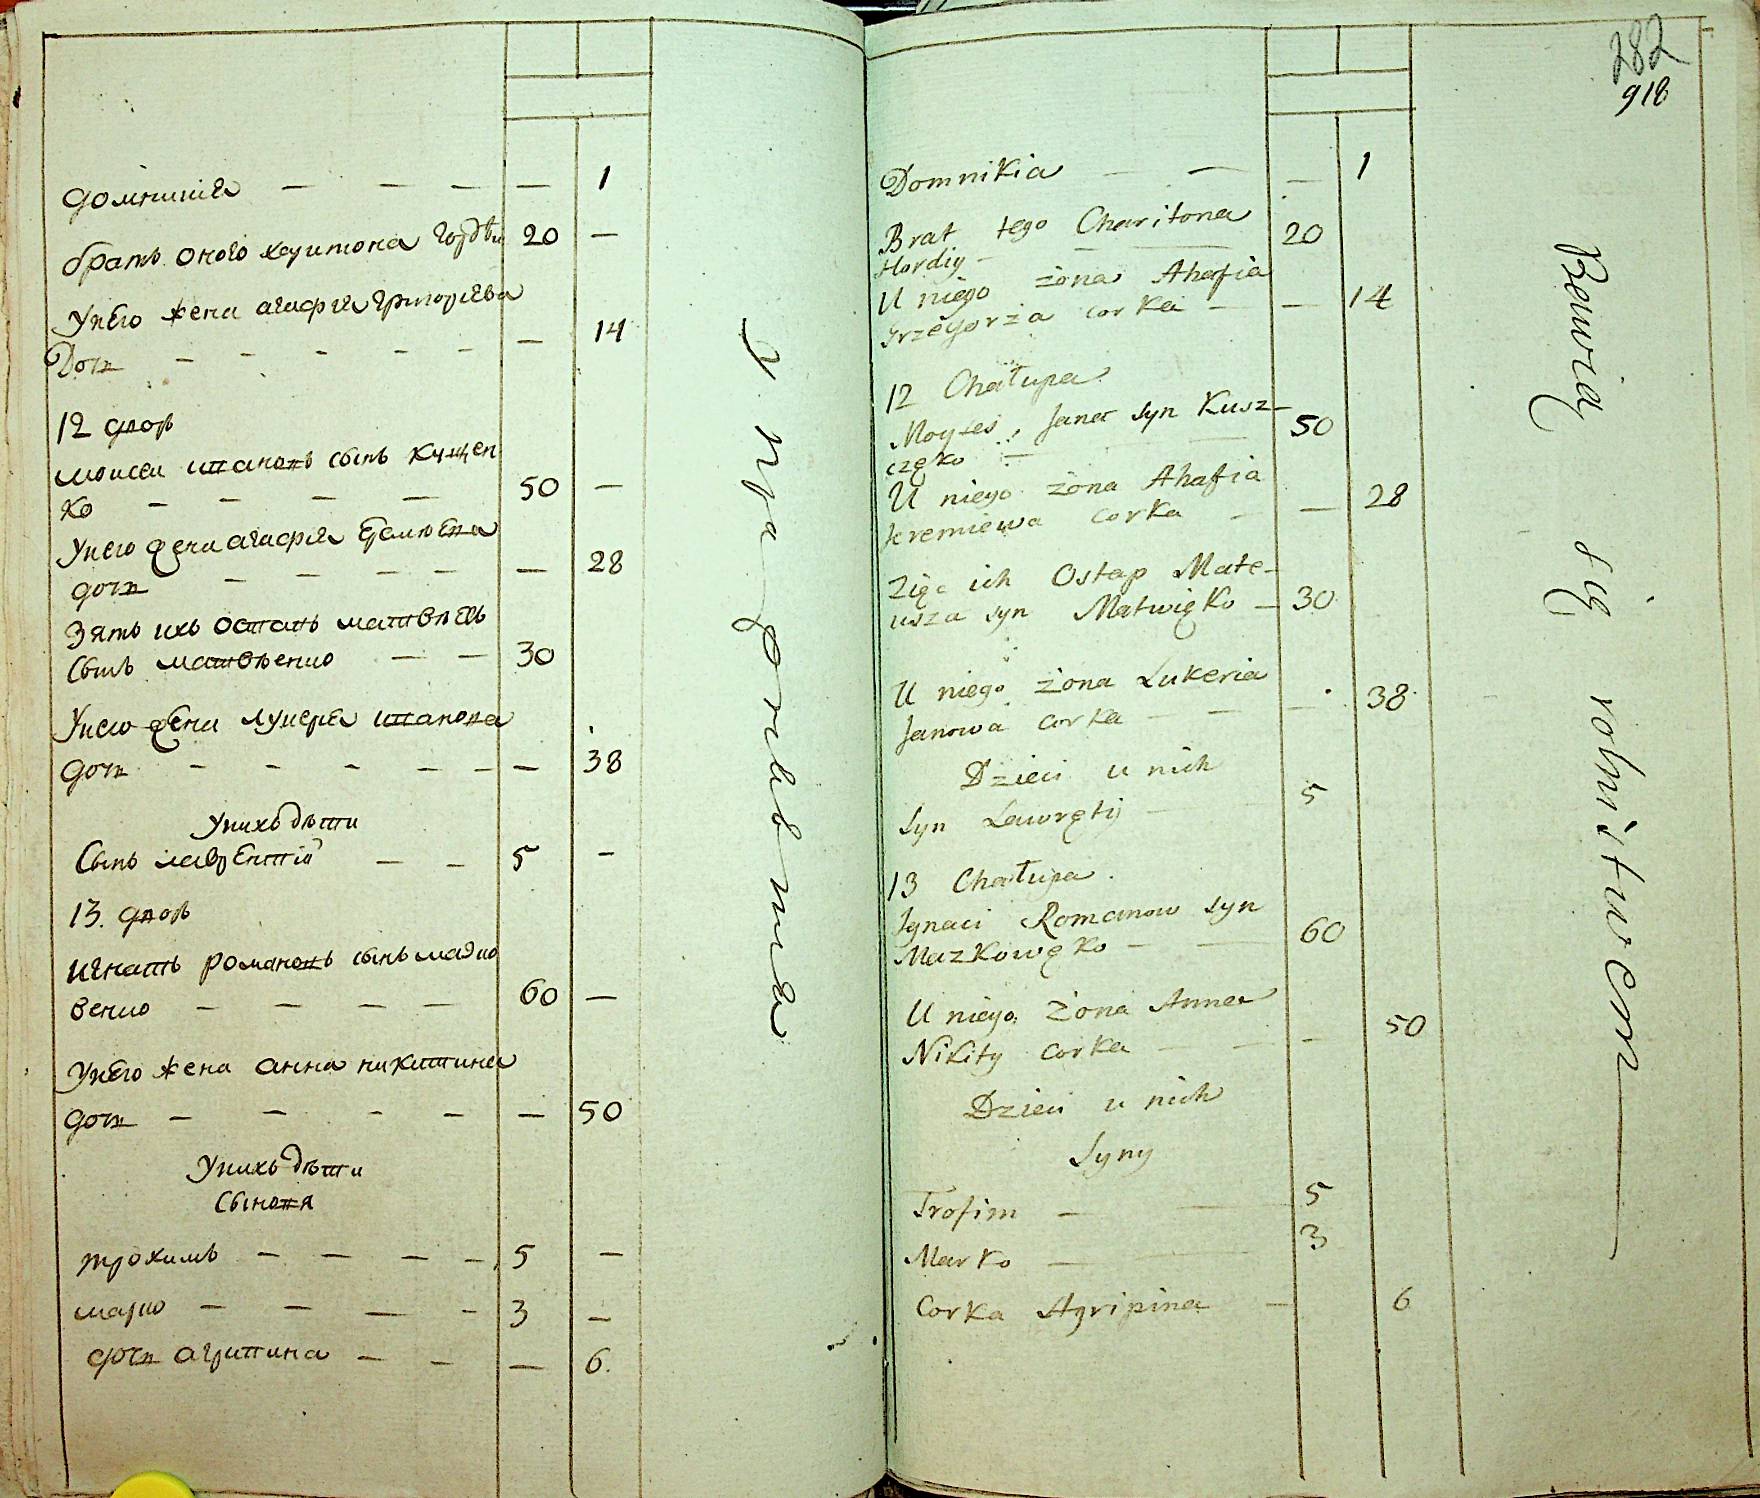 Домникия — — — — 1
братъ оного харитона гордѣи 20 —
У него жена агафия григориева
Дочь — — — — — — 14
12 дворъ
моисеи ивановъ сынъ Кущен
ко — — — — 50 —
У него жена агафия Еремиева
дочь — — — — — 28
Зять ихъ остапъ матвѣевъ
сынъ матвѣенко — — 30
У него жена лукеря иванова
дочь — — — — — — 38
У нихъ дѣти
Сынъ лаврентіи — — 5 —
13. дворъ
игнатъ романовъ сынъ мазко
венко — — — — 60 —
У него жена анна никитина
дочь — — — — — 50
У нихъ дѣти
Сыновя
трохимъ — — — — 5 —
марко — — — - 3 —
дочь агрипина — — — 6.
282
918
Domnikia — — — 1
Brat tego Charitona 20
Hordiy — — —
U niego żona Ahafia
Grzegorża corka — — 14
12 Chałupa
Moyzes, Jana syn Kusz-
częko — 50
U niego żona Ahafia
Jeremiewa corka — — 28
Zięc ich Ostap Mate-
usza syn Matwięko — 30
U niego żona Lukeria
Janowa corka — — — 38
Dzieci u nich
Syn Lawrętij — 5
13 Chałupa.
Ignaci Romanow syn
Mazkowęko — — 60
U niego żona Anna
Nikity corka — — — 50
Dzieci u nich
Syny
Trofim — — 5
Marko — 3
Corka Agripina — 6
Bawią się rolnictwem